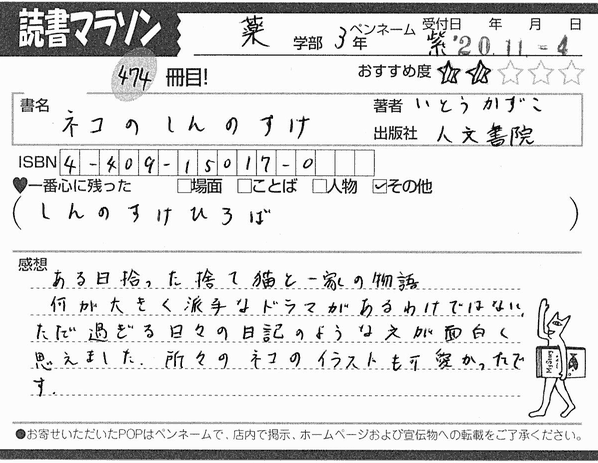 読書マラソン
薬 学部 3年 ペンネーム 紫 受付日 年 月 日
'20.11.-4
474 冊目! おすすめ度 ★★☆☆☆
書名 ネコのしんのすけ
著者 いとうかずこ
出版社 人文書院
ISBN 4-409-15017-0
♥一番心に残った □場面 □ことば □人物 ☑その他
(しんのすけひろば)
感想
ある日拾った捨て猫と一家の物語。
何が大きく派手なドラマがあるわけではない、
ただ過ぎる日々の日記のような文が面白く
思えました。所々のネコのイラストも可愛かったで
す.
●お寄せいただいたPOPはペンネームで、店内で掲示、ホームページおよび宣伝物への転載をご了承ください。